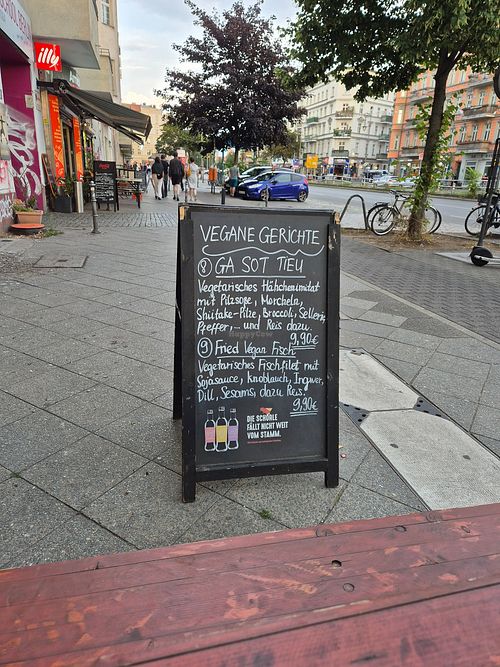 illy
VEGANE GERICHTE
8 GA SOT TIEU
Vegetarisches Hähchenimitat
mit Pilzsoße, Morcheln,
Shiitake-Pilze, Broccoli, Sellerie,
Pfeffer,... und Reis dazu.
9,90€
9 Fried Vegan Fisch
Vegetarisches Fischfilet mit
Sojasauce, knoblauch, Ingwer,
Dill, Sesams, dazu Reis.
9,90€
DIE SCHORLE
FÄLLT NICHT WEIT
VOM STAMM.
HappyCow